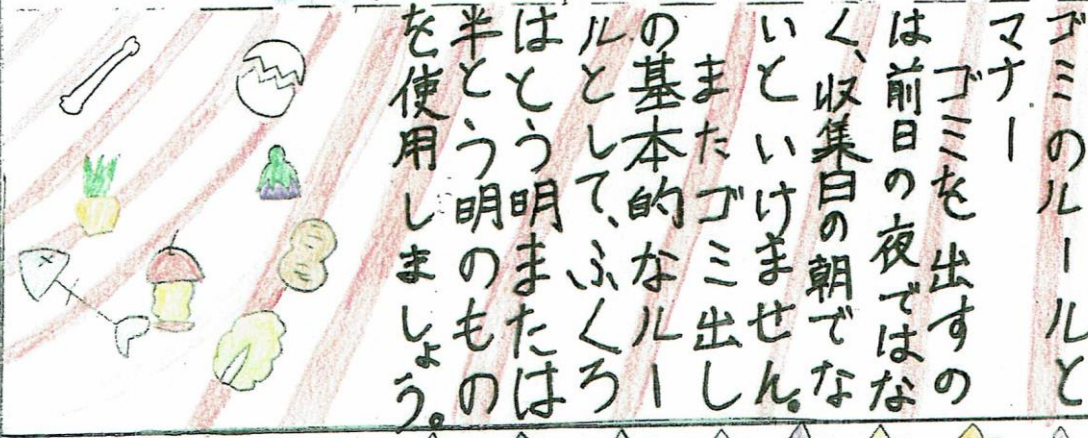 ゴミのルールと
マナー
　ゴミを出すの
は前日の夜ではな
く、収集日の朝でな
いといけません。
　またゴミ出し
の基本的なルー
ルとして、ふくろ
はとう明または
半とう明のもの
を使用しましょう。